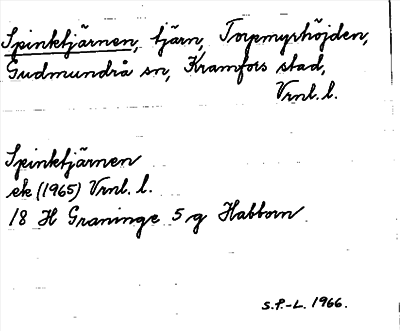 Spinktjärnen, tjärn, Torpmyrhöjden,
Gudmundrå sn, Kramfors stad,
Vrnl. l.
Spinktjärnen
ek (1965) Vrnl. l.
18 H Graninge 5 g Habborn
S.P.-L. 1966.